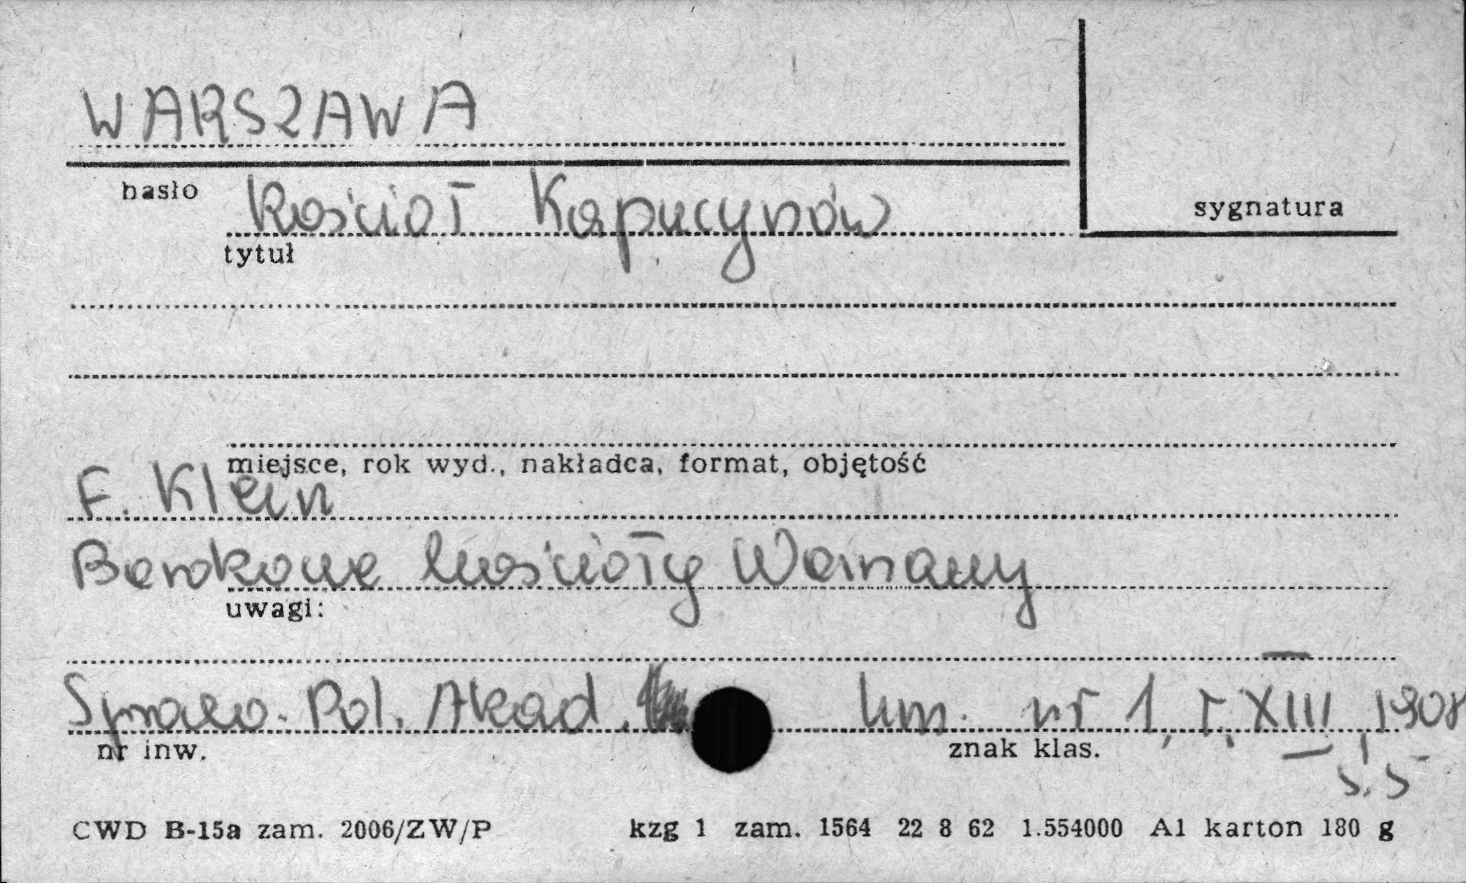 WARSZAWA
hasło
Kościoł Kapucynów
sygnatura
tytuł
miejsce, rok wyd., nakładca, format, objętość
F. Klein
Barokowe kościoły Warszawy
uwagi:
Spraw. Pol. Akad. Um. nr 1, r. XIII, 1908
nr inw.
znak klas.
s. 5
CWD B-15a zam. 2006/ZW/P kzg 1 zam. 1564 22 8 62 1.554000 A1 karton 180 g